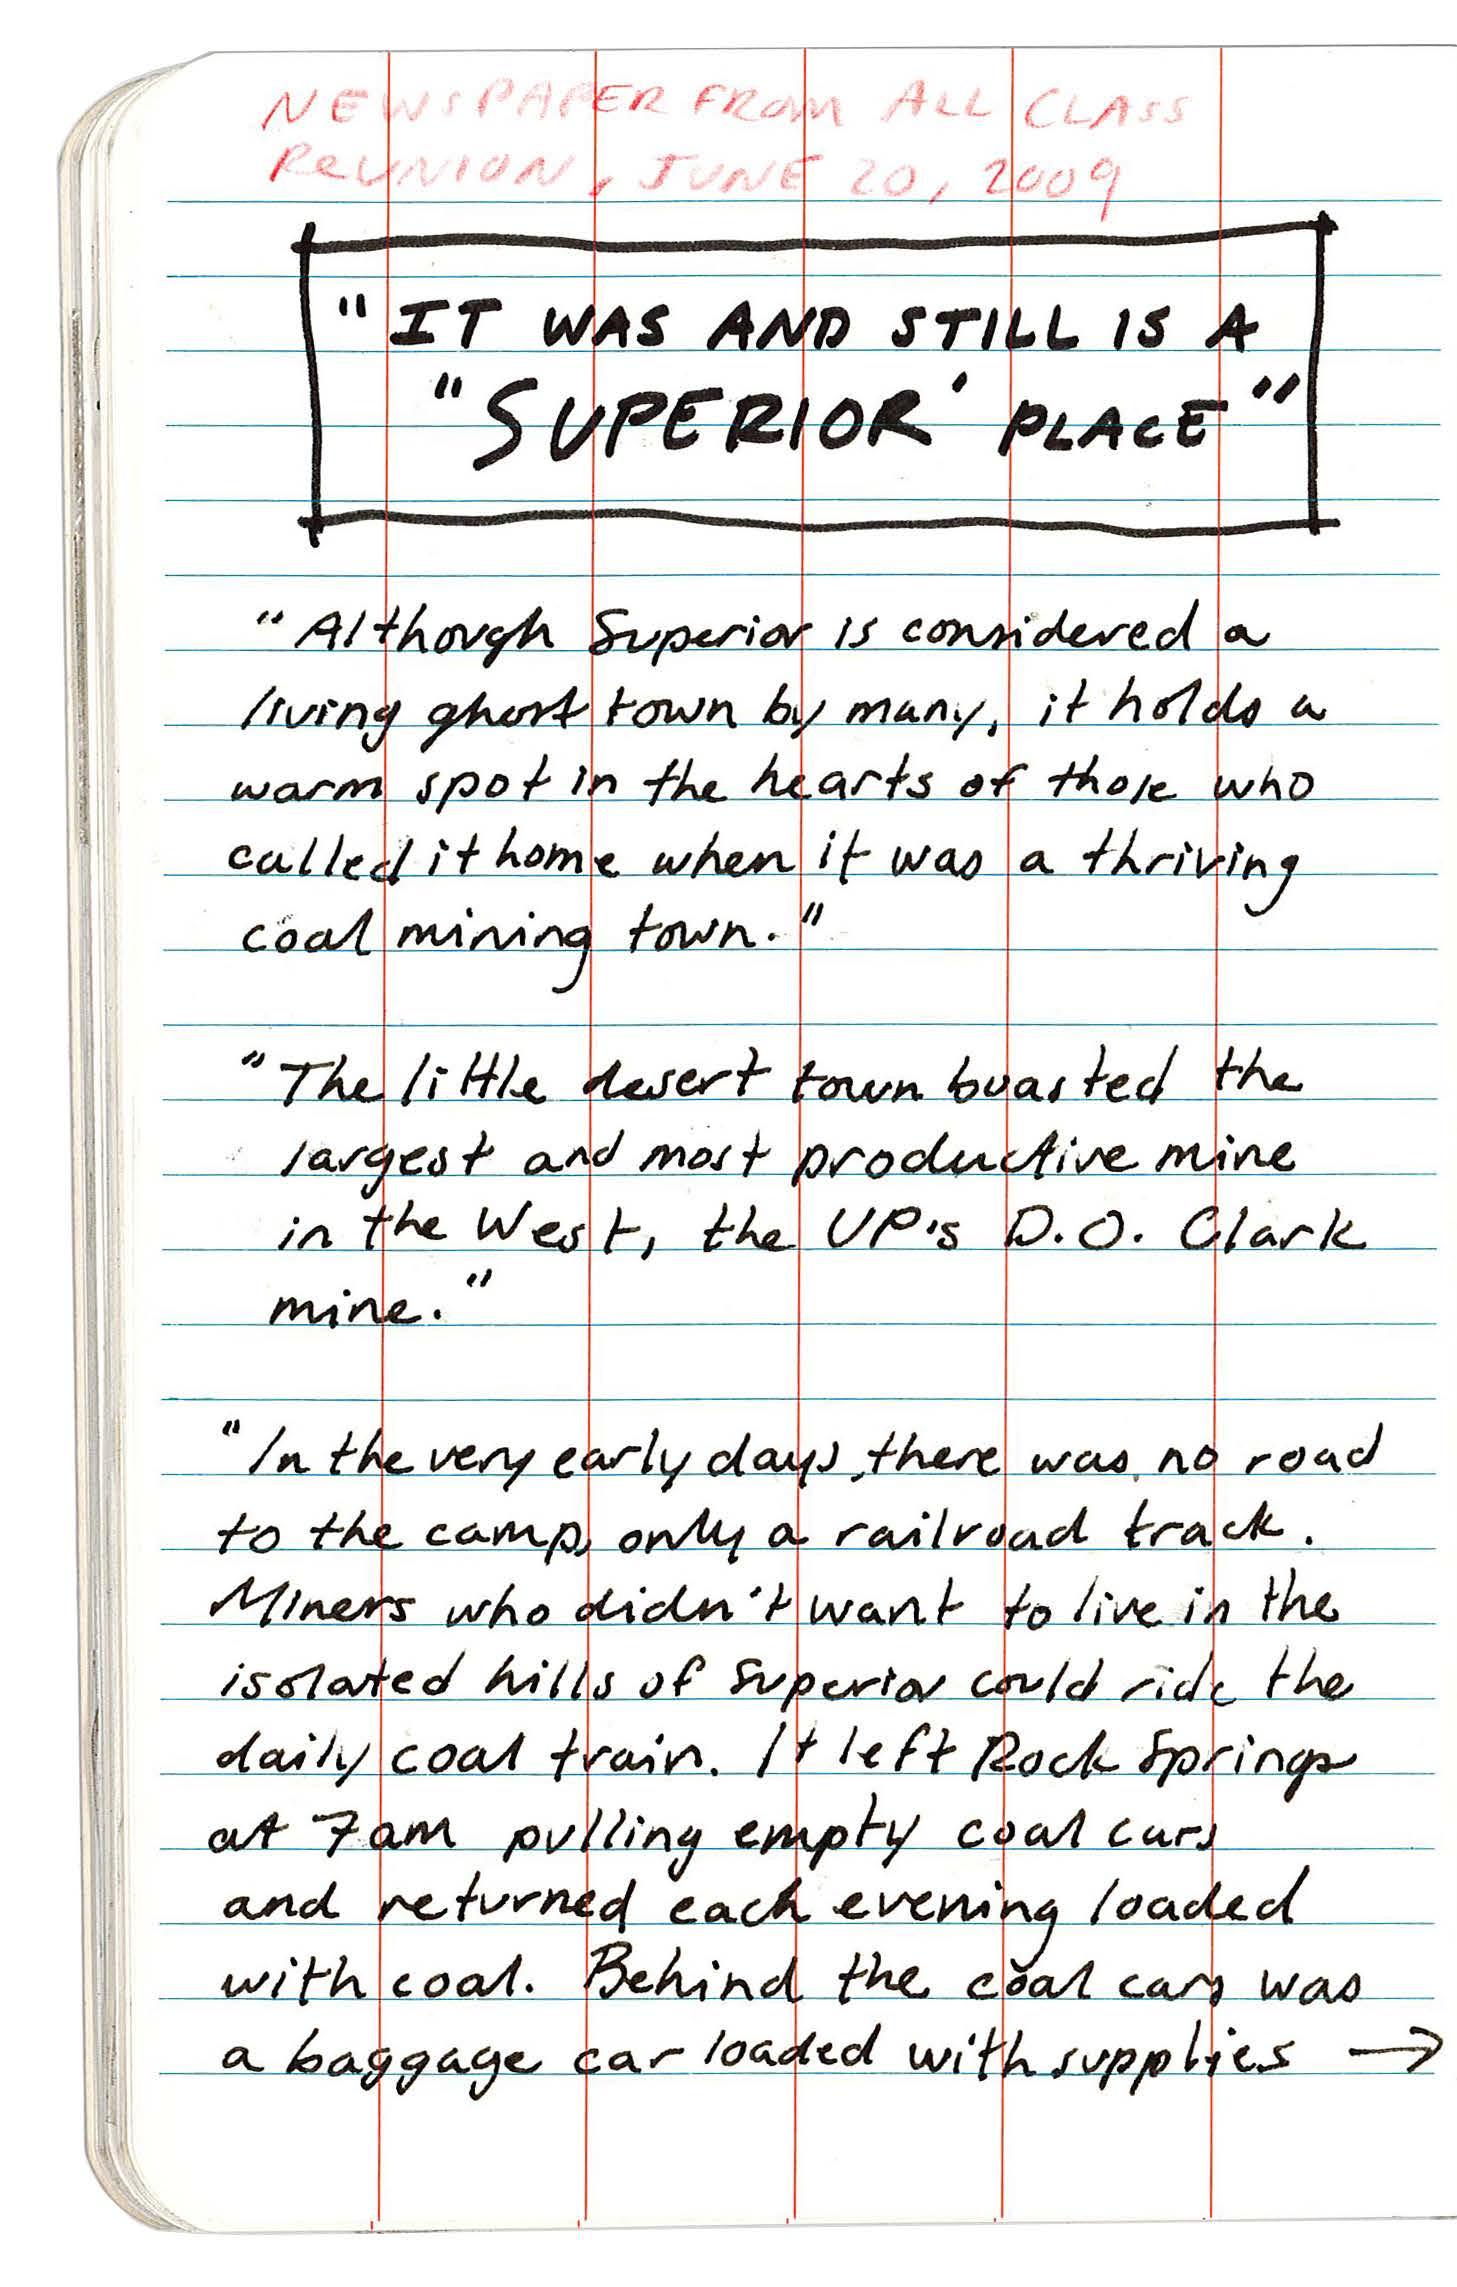 NEWSPAPER FROM ALL CLASS
REUNION, JUNE 20, 2009
"IT WAS AND STILL IS A
"SUPERIOR' PLACE"
"Although Superior is considered a
living ghost town by many, it holds a
warm spot in the hearts of those who
called it home when it was a thriving
coal mining town."
"The little desert town boasted the
largest and most productive mine
in the West, the UP's D.O. Clark
mine."
"In the very early days, there was no road
to the camp, only a railroad track.
Miners who didn't want to live in the
isolated hills of Superior could ride the
daily coal train. It left Rock Springs
at 7am pulling empty coal cars
and returned each evening loaded
with coal. Behind the coal cars was
a baggage car loaded with supplies →